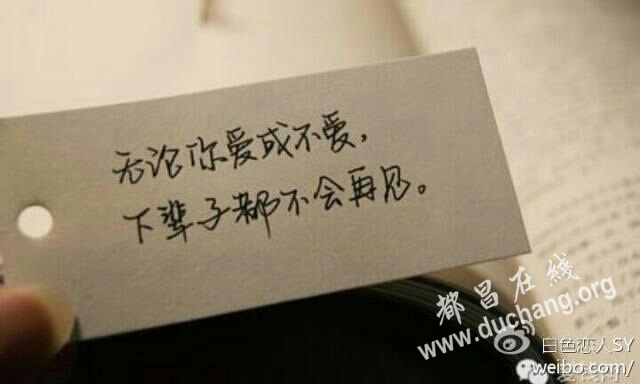 无论你爱或不爱，
下辈子都不会再见。
都昌在线
www.duchang.org
白色恋人SY
weibo.com/